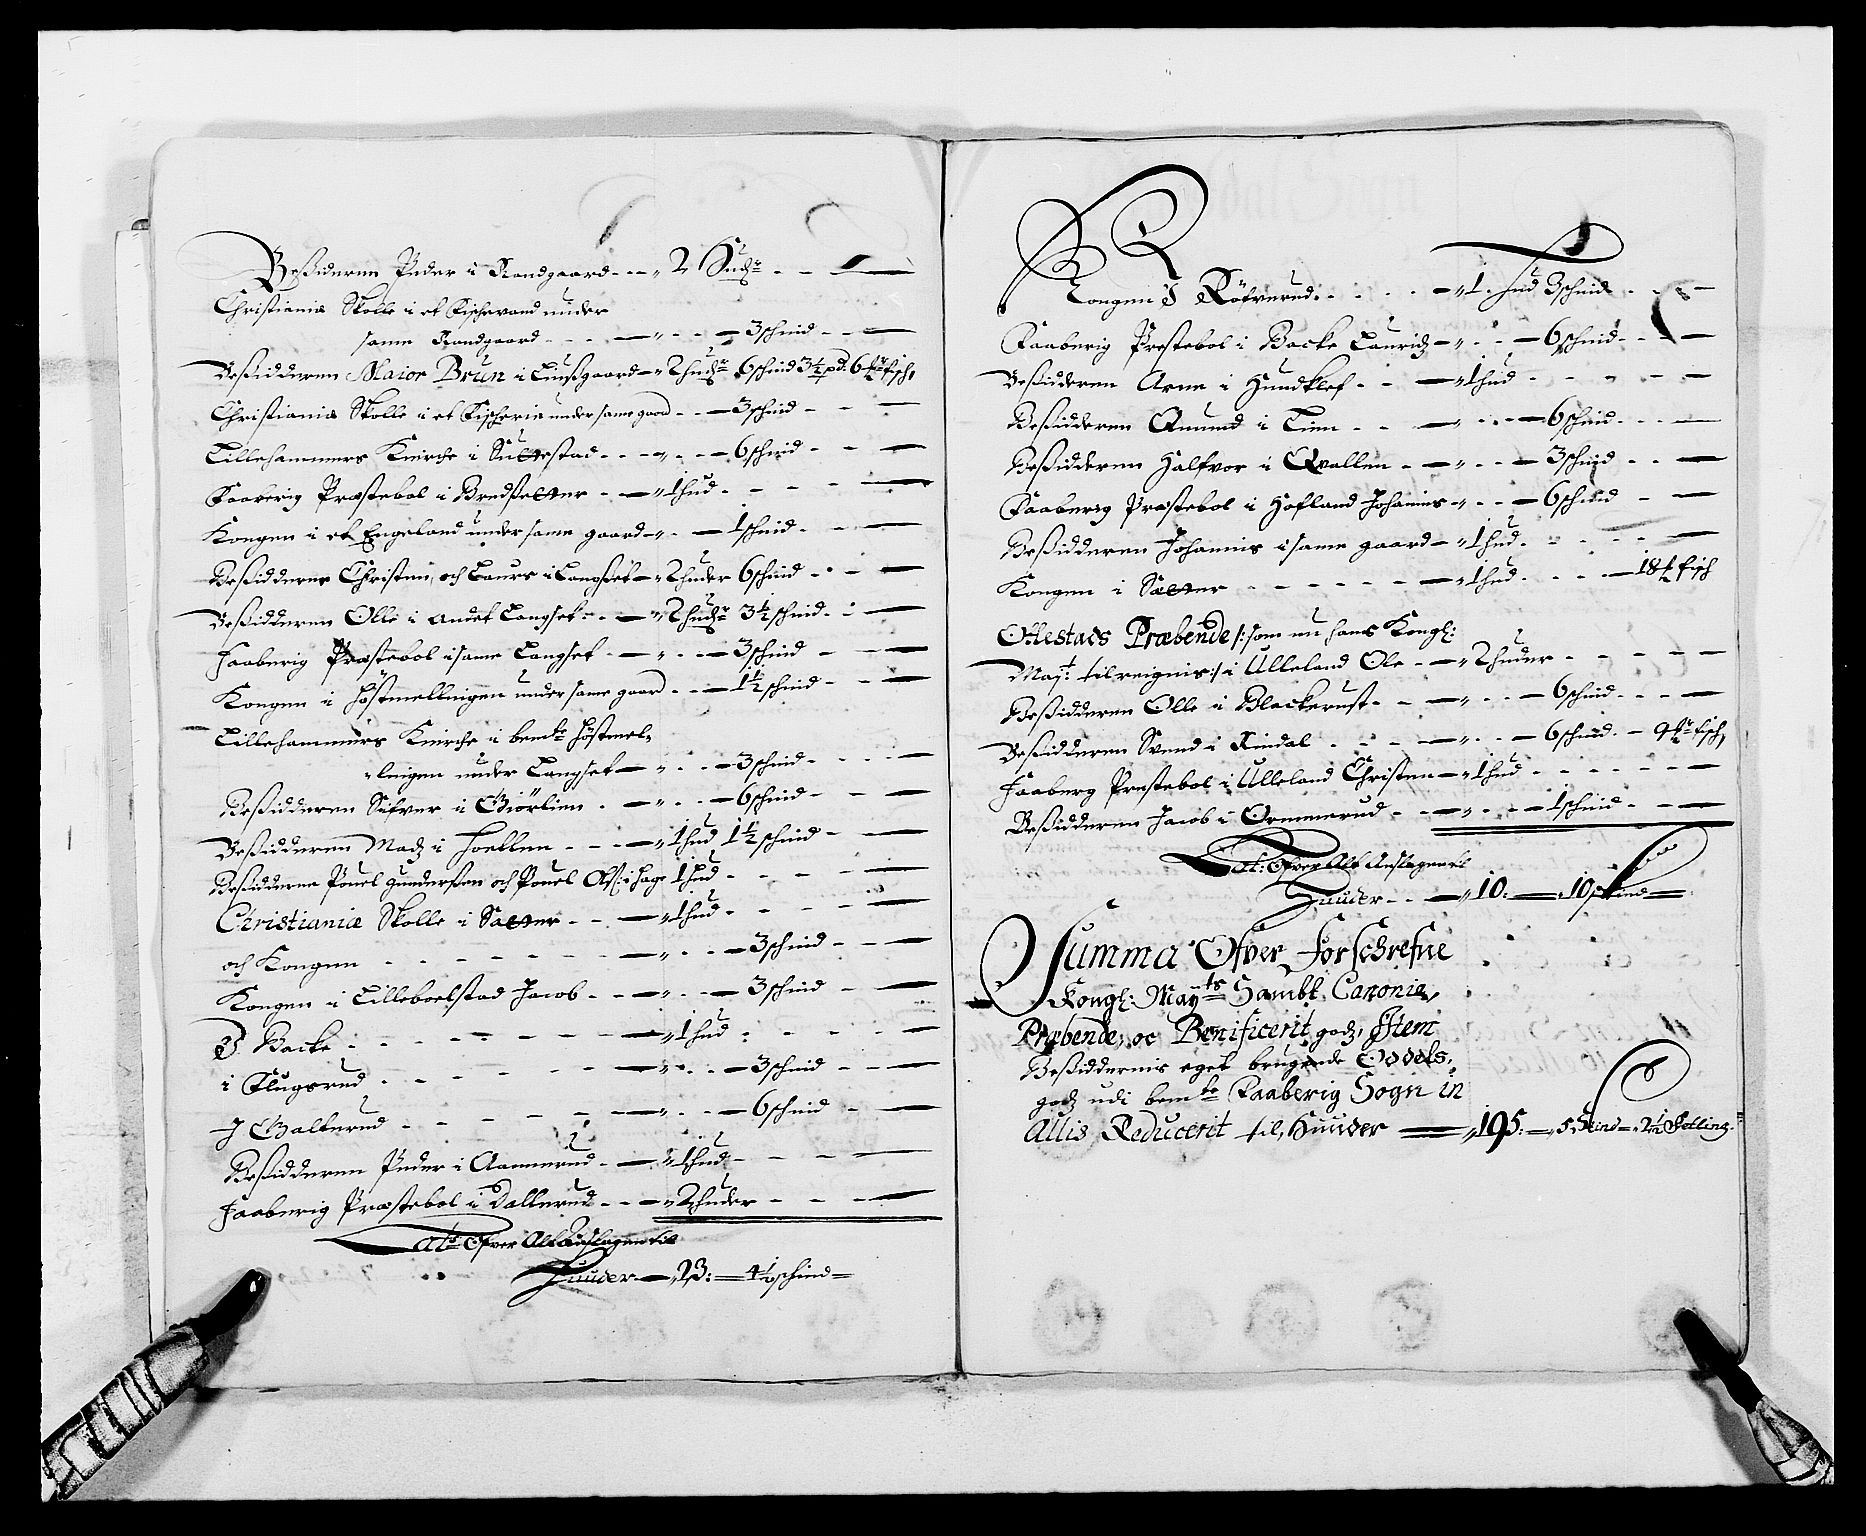 Besidderen Peder i Randgaard - - „ 2 Hudr
Christianiæ Skolle i et Fischevand under
same Randgaard - - - „ - - 3 schind - -
Besidderen Maior Brun i Liusgaard „ 2 hudr 6 schind 3½ pd: 6½ fisch,
Christianiæ Skolle i et Fischerie under same gaard - - 3 schind - -
Lillehammers Kirche i Suttestad - - - „ - - 6 schind - -
Faaberig Præstebol i Bredsetter - - „ 1 hud - -
Kongen i et Engeland under same gaard - „ - 1 schind - -
Besidderne Christen, och Laurs i Langset - „ 2 huder 6 schind - -
Besidderen Olle i andet Langset - - „ 2 hudr 3½ schind - -
Faaberig Præstebol i same Langset - - „ - - 3 schind - -
Kongen i Höstmellingen under same gaard - - 1½ schind - -
Lillehammers Kirche i bemte Höstmel-
-lingen under Langset - „ - - 3 schind - -
Besidderen Sifver i Giörlien - - „ - - 6 schind - -
Besidderen Madz i Hoellen - - - „ 1 hud 1½ schind - -
Besidderne Pouel Gundersen och Pouel Ols: i Hage 1 hud - -
Christianiæ Skolle i Sætter - - „ 1 hud - -
och Kongen - - - „ - - 3 schind - -
Kongen i Lilleboelstad Jacob - - „ - - 3 schind - -
I Backe - - - „ 1 hud - -
i Flugsrud - - - „ - - 3 schind - -
I Galterud - - - „ - - 6 schind - -
Besidderen Peder i Aamerud - - „ 1 hud - -
Faaberig Præstebol i Dallerud - - „ 2 huder - -
Lats Ofver Alt Anslagen til
Huuder „ 23: = 4½ schind =
Kongen I Röfverud - - - „ 1 hud 3 schind - -
Faaberig Præstebol i Backe Lauridz „ - - 6 schind - -
Besidderen Arne i Hundklef - - „ 1 hud - -
Besidderen Amund i Lien - - „ - - 6 schind - -
Besidderen Halfvor i Qvallen - - „ - - 3 schind - -
Faaberig Præstebol i Hofland Johannis „ - - 6 schind - -
Besidderen Johannis i same gaard „ 1 hud - -
Kongen i Sætter - - - „ 1 hud - - 18½ fisch
Ottestads Præbende /: som nu hans Kongl:
Mayt: tilreignis :/ i Ulleland Ole - - „ 2 huder - -
Besidderen Olle i Blackerust - - „ - - 6 schind - -
Besidderen Svend i Rindal - - - „ - - 6 schind - 9½ fisch,
Faaberg Præstebol i Ulleland Christen „ 1 hud - -
Besidderen Jacob i Ormmerud - - „ - - 1 schind - -
Lat: Ofver Alt Anslagen til
Huuder - - „ 10: = „ 10 schind =
Summa Ofver forschrefne
Kongl: Mayts Sambt Canonie,
Præbende, oc Benificerit godz, Item
Besiddernis eget brugende Odels,
godz udi bemte Faaberig Sogn in
Allis Reducerit til, Huuder = „ 195: = „ 5 Skind =